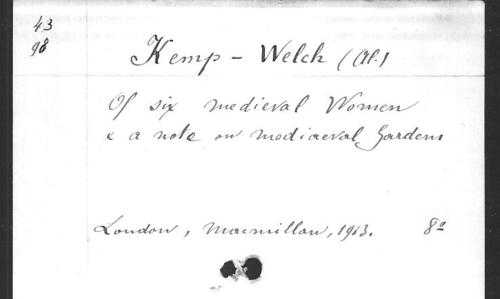 43
98
Kemp - Welch (Al.)
Of six medieval Women
& a note on mediaeval Gardens
London, Macmillan, 1913. 8º